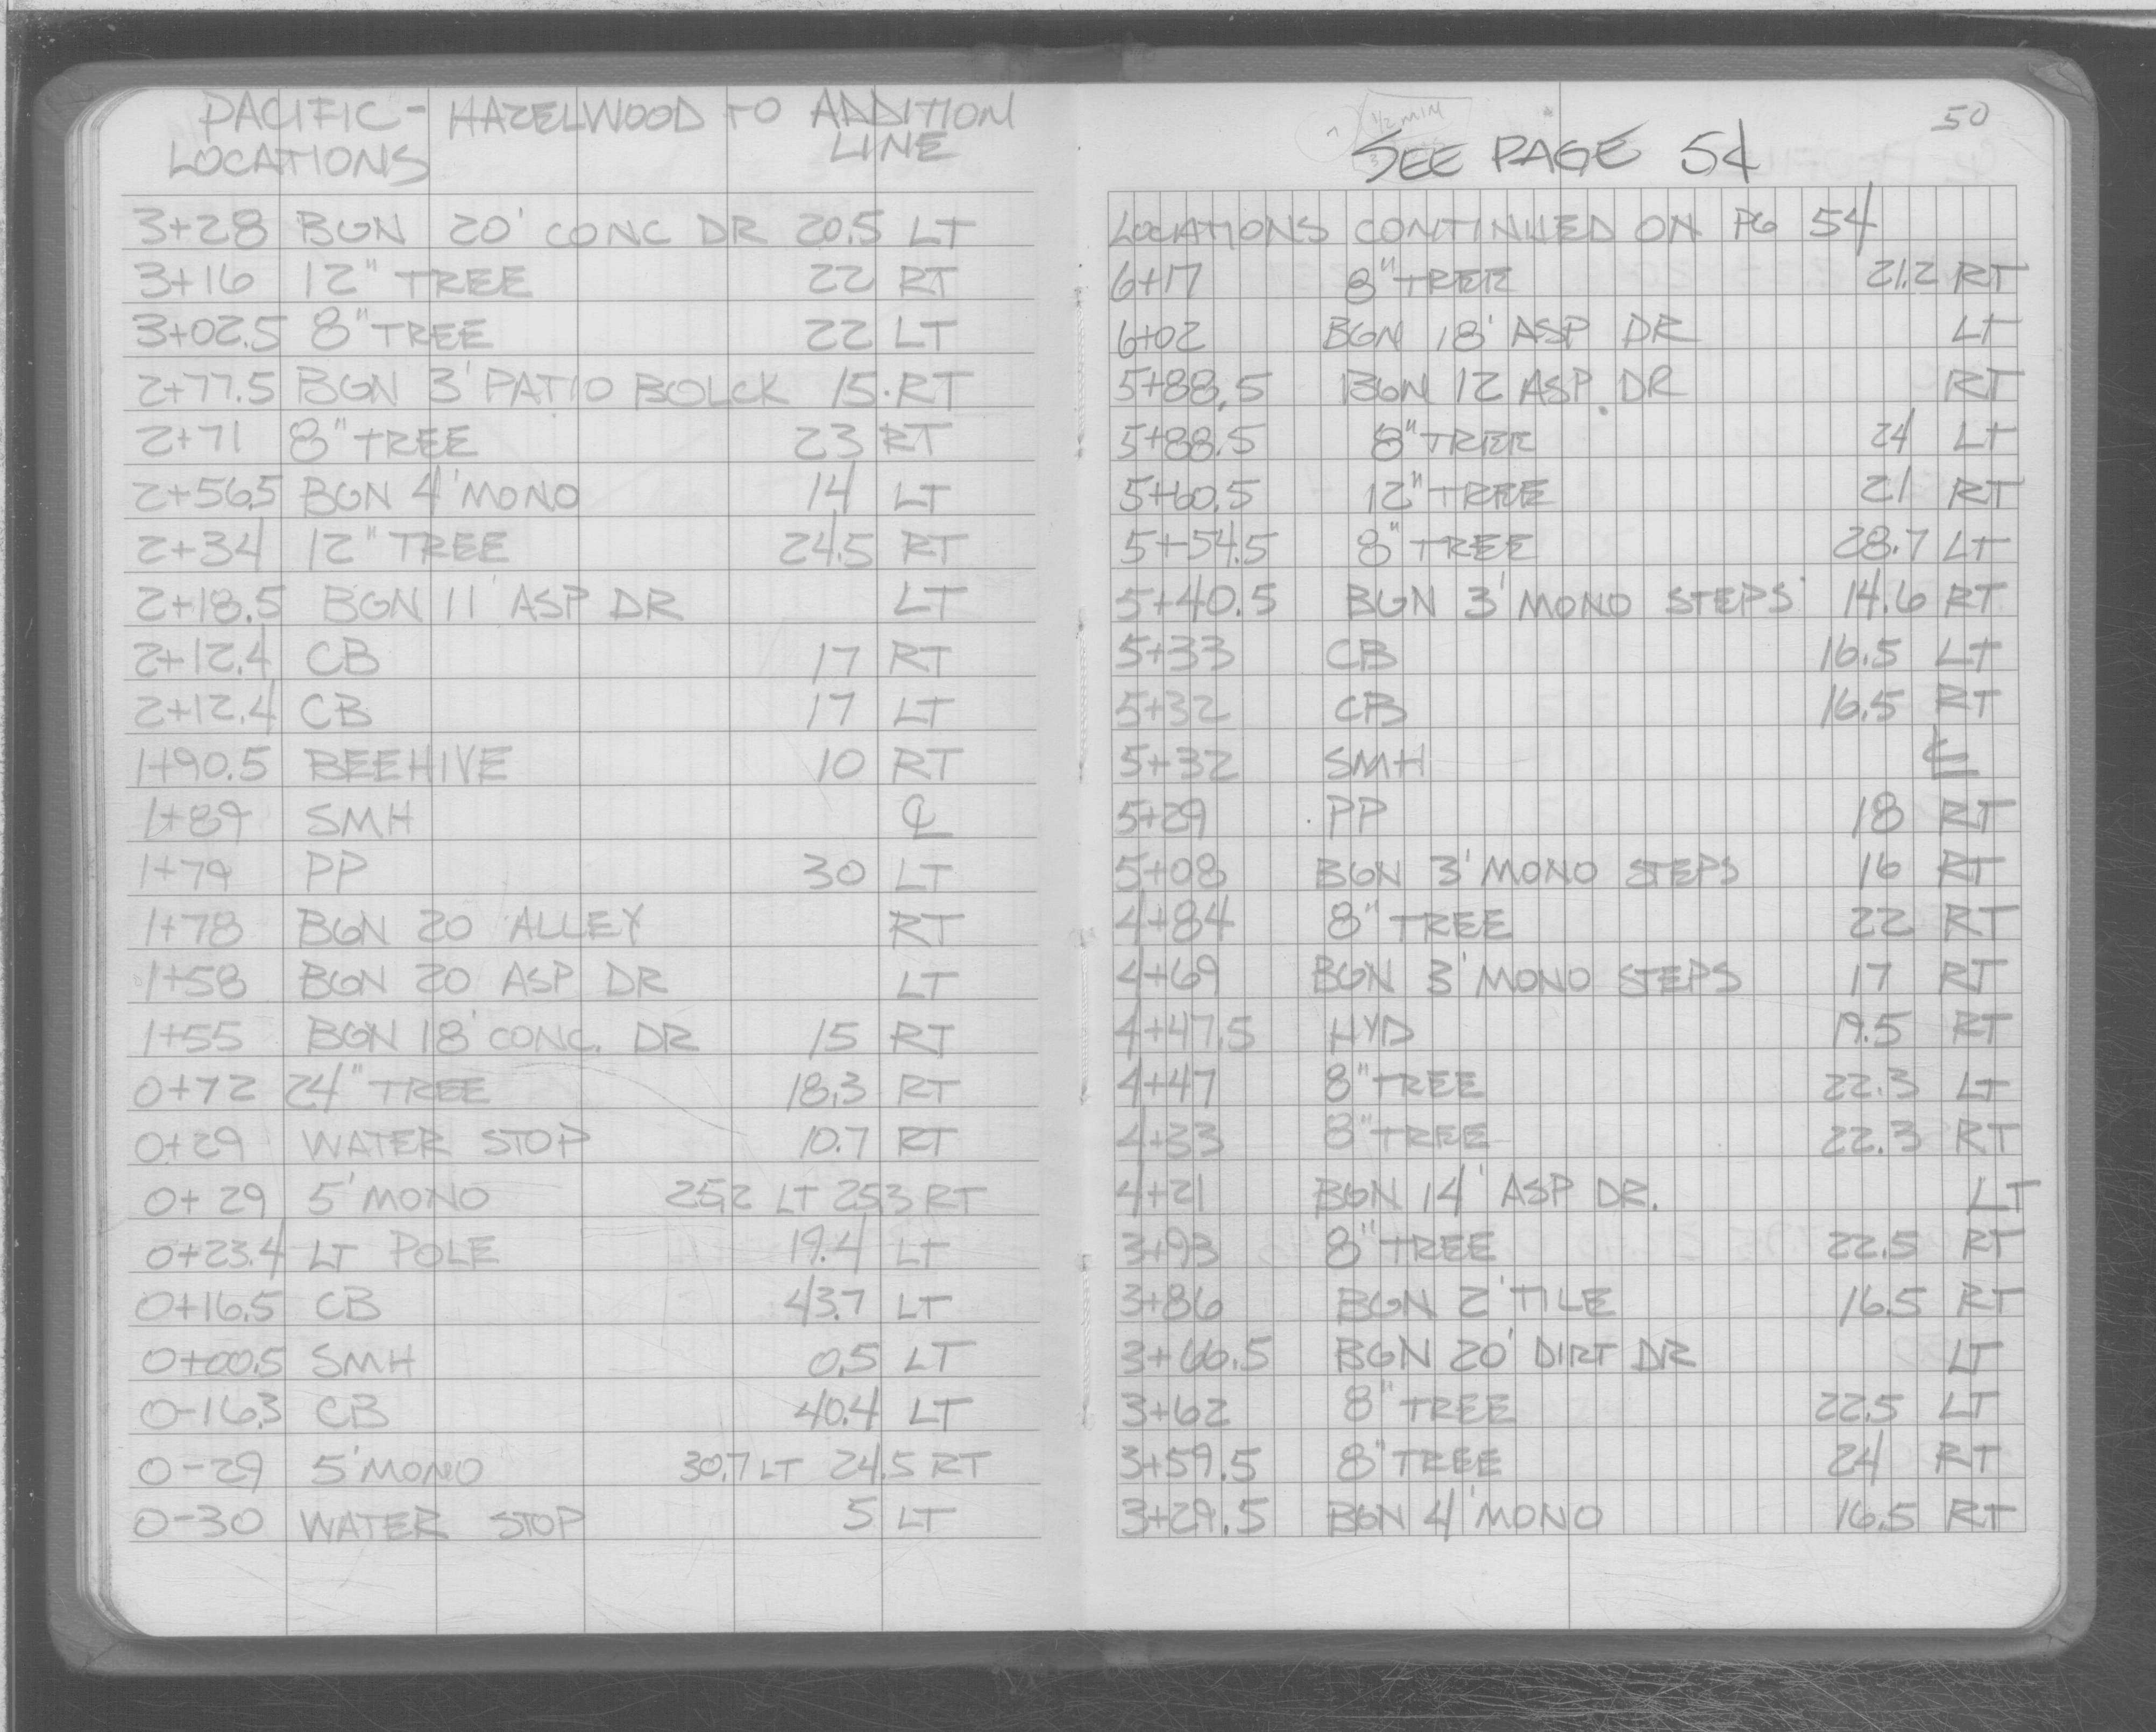 PACIFIC - HAZELWOOD TO ADDITION
LOCATIONS LINE
3+28 BGN 20' CONC DR 20.5 LT
3+16 12" TREE 22 RT
3+02.5 8" TREE 22 LT
2+77.5 BGN 3' PATIO BOLCK 15 RT
2+71 8" TREE 23 RT
2+56.5 BGN 4' MONO 14 LT
2+34 12" TREE 24.5 RT
2+18.5 BGN 11' ASP DR LT
2+12.4 CB 17 RT
2+12.4 CB 17 LT
1+90.5 BEEHIVE 10 RT
1+89 SMH ℄
1+79 PP 30 LT
1+78 BGN 20 ALLEY RT
1+58 BGN 20 ASP DR LT
1+55 BGN 18' CONC. DR 15 RT
0+72 24" TREE 18.3 RT
0+29 WATER STOP 10.7 RT
0+29 5' MONO 25.2 LT 25.3 RT
0+23.4 LT POLE 19.4 LT
0+16.5 CB 43.7 LT
0+00.5 SMH 0.5 LT
0-16.3 CB 40.4 LT
0-29 5' MONO 30.7 LT 24.5 RT
0-30 WATER STOP 5 LT
1/2 MIN
50
SEE PAGE 54
LOCATIONS CONTINUED ON PG 54
6+17 8" TREE 21.2 RT
6+02 BGN 18' ASP DR LT
5+88.5 BGN 12 ASP. DR RT
5+88.5 8" TREE 24 LT
5+60.5 12" TREE 21 RT
5+54.5 8" TREE 28.7 LT
5+40.5 BGN 3' MONO STEPS 14.6 RT
5+33 CB 16.5 LT
5+32 CB 16.5 RT
5+32 SMH ℄
5+29 PP 18 RT
5+08 BGN 3' MONO STEPS 16 RT
4+84 8" TREE 22 RT
4+69 BGN 3' MONO STEPS 17 RT
4+47.5 HYD 19.5 RT
4+47 8" TREE 22.3 LT
4+33 8" TREE 22.3 RT
4+21 BGN 14' ASP DR. LT
3+93 8" TREE 22.5 RT
3+86 BGN 2' TILE 16.5 RT
3+66.5 BGN 20' DIRT DR LT
3+62 8" TREE 22.5 LT
3+59.5 8" TREE 24 RT
3+29.5 BGN 4' MONO 16.5 RT